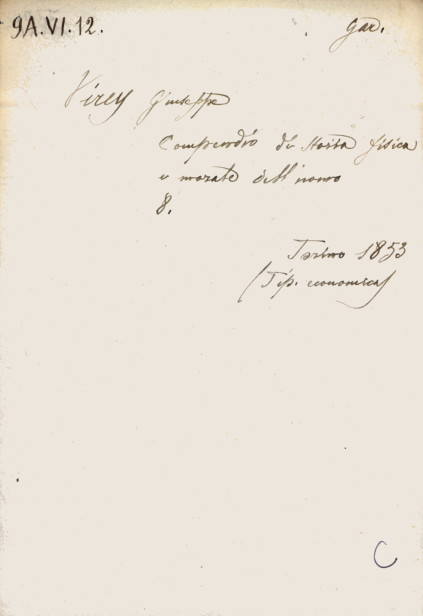 9A.VI.12.
gar.
Virey Giuseppe
Compendio di storia fisica
e morale dell'uomo
8.
Torino 1853
(Tip. economica)
C